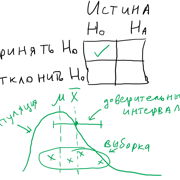 ИСТИНА
H₀ Hₐ
РИНЯТЬ H₀
ТКЛОНИТЬ H₀
μ X̄
доверительный
интервал
пуляция
выборка
x x x